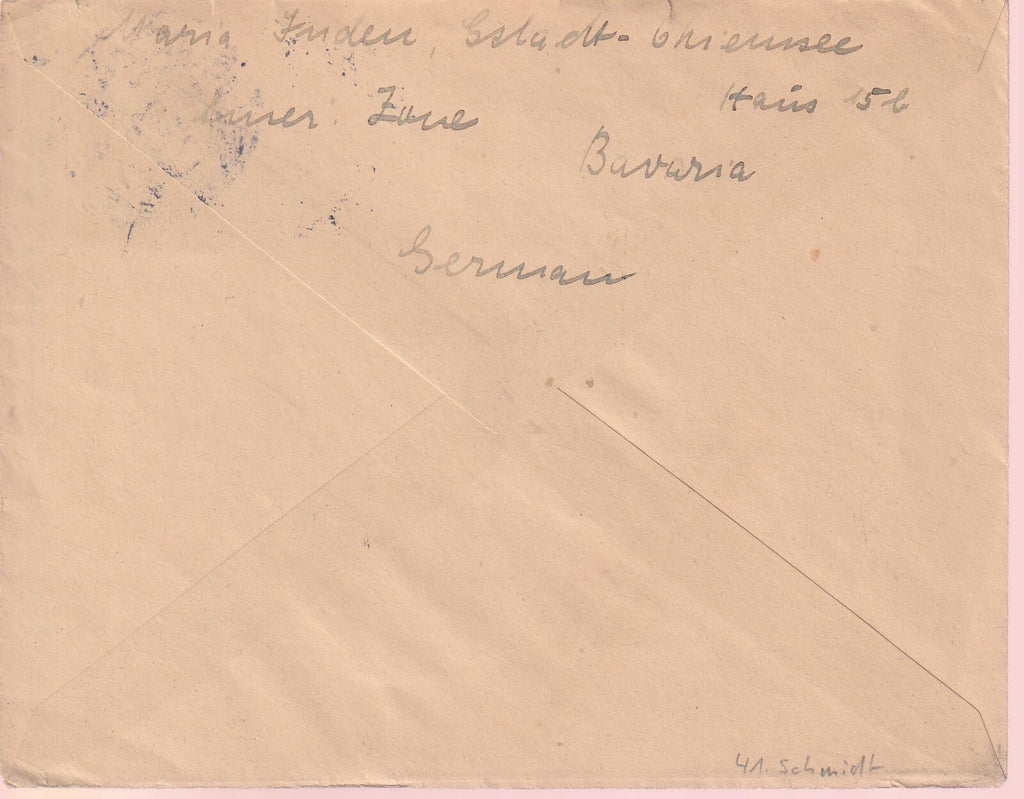 Maria Inden, Gstadt-Chiemsee
Haus 15 b
Amer. Zone
Bavaria
German
41. Schmidt